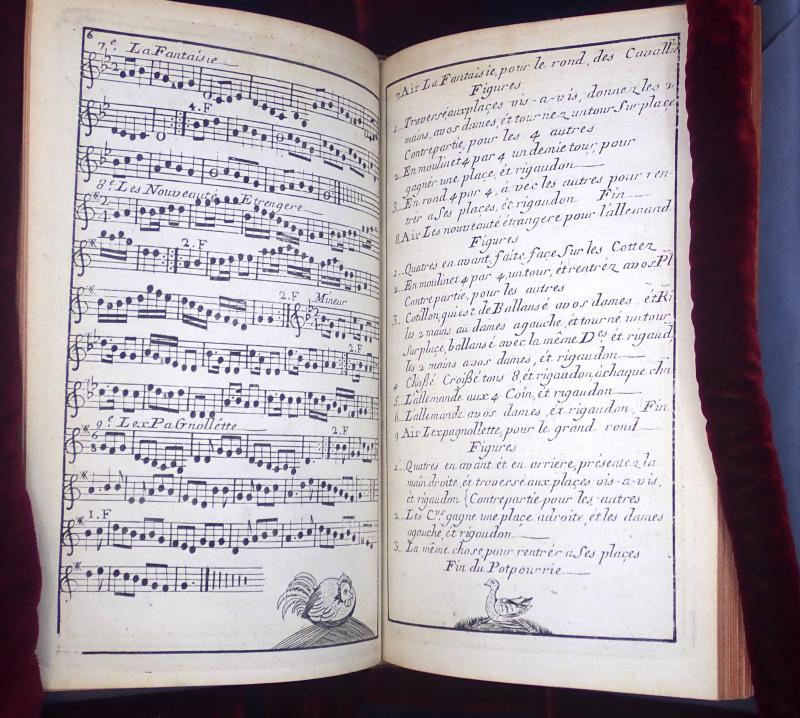 6
7.e La Fantaisie
4. F
8.e Les Nouveauté Etrengere
2. F
2. F Mineur
2. F
9.e LexPaGnollétte
2. F
1. F
7 Air La Fantaisie, pour le rond, des Cavall.rs
Figures
1.. Traversé aux plaçes vis-a-vis, donnez les 2
mains, a vos dames, ét tournez un tour Sur plaçe
Contrepartie, pour les 4 autres
2.. En moulinet 4 par 4 un demie tour, pour
gagner une plaçe, ét rigaudon
3.. En rond 4 par 4, a vec les autres pour ren-
trér a Ses plaçes, ét rigaudon Fin
8 Air Les nouveauté étrangere pour l'allemand
Figures
1.. Quatres en avant, faite façe Sur les Cottez
2.. En moulinet 4 par 4, un tour, ét rentréz a vos Pl
Contrepartie, pour les autres
3.. Cotillon, qui est de Ballansé a vos dames, ét Ri
les 2 mains au dames agauche, ét tourné un tour
Sur plaçe, ballansé avec la même D.es ét rigaud
les 2 mains a vos dames, ét rigaudon
4 Chaßé Croißé tous 8, ét rigaudon, à chaque cha
5.. L'allemande aux 4 Coin, ét rigaudon
6.. L'allemande a vos dames, ét rigaudon, Fin
9 Air Lexpagnollétte, pour le grand rond
Figures
1.. Quatres en avant ét en arriére, présentez la
main droite, ét traversé aux plaçes vis-a-vis,
ét rigaudon { Contrepartie pour les autres
2.. Les C.rs gagne une plaçe adroite, ét les dames
agauche, ét rigaudon
3.. La même chose pour rentrér a Ses plaçes
Fin du Potpourrie